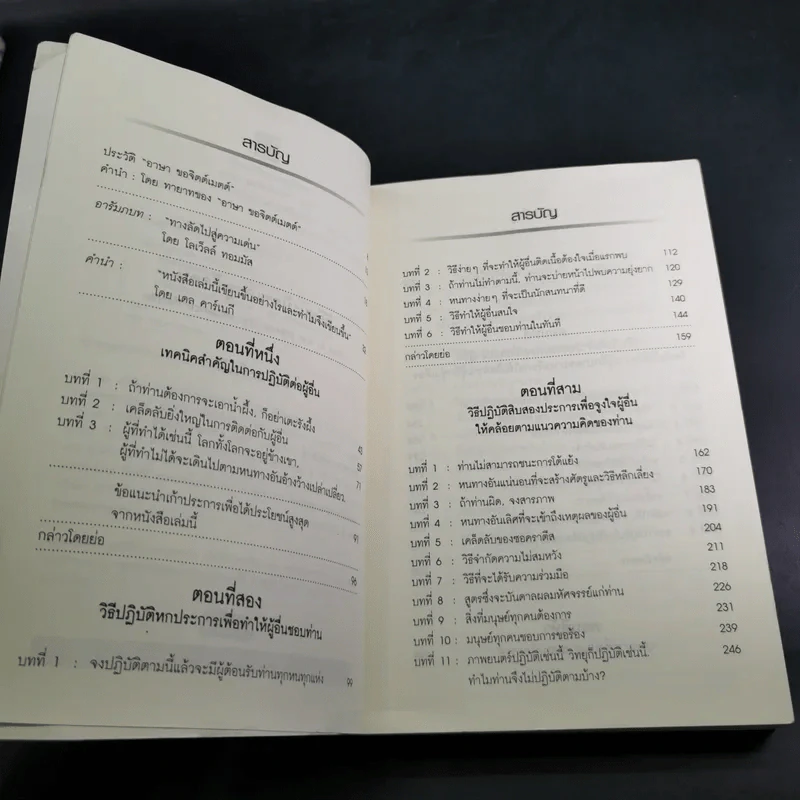 สารบัญ
ประวัติ "อาษา ขอจิตต์เมตต์"
คำนำ : โดย ทายาทของ "อาษา ขอจิตต์เมตต์"
อารัมภบท : "ทางลัดไปสู่ความเด่น"
โดย โลเวิลล์ ทอมมัส
คำนำ : "หนังสือเล่มนี้เขียนขึ้นอย่างไรและทำไมจึงเขียนขึ้น"
โดย เดล คาร์เนกี
ตอนที่หนึ่ง
เทคนิคสำคัญในการปฏิบัติต่อผู้อื่น
บทที่ 1 : ถ้าท่านต้องการจะเอาน้ำผึ้ง, ก็อย่าเตะรังผึ้ง 43
บทที่ 2 : เคล็ดลับยิ่งใหญ่ในการติดต่อกับผู้อื่น 57
บทที่ 3 : ผู้ที่ทำได้เช่นนี้ โลกทั้งโลกจะอยู่ข้างเขา, 71
ผู้ที่ทำไม่ได้จะเดินไปตามหนทางอันอ้างว้างเปล่าเปลี่ยว.
ข้อแนะนำเก้าประการเพื่อได้ประโยชน์สูงสุด
จากหนังสือเล่มนี้ 91
กล่าวโดยย่อ 96
ตอนที่สอง
วิธีปฏิบัติหกประการเพื่อทำให้ผู้อื่นชอบท่าน
บทที่ 1 : จงปฏิบัติตามนี้แล้วจะมีผู้ต้อนรับท่านทุกหนทุกแห่ง 99
สารบัญ
บทที่ 2 : วิธีง่ายๆ ที่จะทำให้ผู้อื่นติดเนื้อต้องใจเมื่อแรกพบ 112
บทที่ 3 : ถ้าท่านไม่ทำตามนี้, ท่านจะบ่ายหน้าไปพบความยุ่งยาก 120
บทที่ 4 : หนทางง่ายๆ ที่จะเป็นนักสนทนาที่ดี 129
บทที่ 5 : วิธีทำให้ผู้อื่นสนใจ 140
บทที่ 6 : วิธีทำให้ผู้อื่นชอบท่านในทันที 144
กล่าวโดยย่อ 159
ตอนที่สาม
วิธีปฏิบัติสิบสองประการเพื่อจูงใจผู้อื่น
ให้คล้อยตามแนวความคิดของท่าน
บทที่ 1 : ท่านไม่สามารถชนะการโต้แย้ง 162
บทที่ 2 : หนทางอันแน่นอนที่จะสร้างศัตรูและวิธีหลีกเลี่ยง 170
บทที่ 3 : ถ้าท่านผิด, จงสารภาพ 183
บทที่ 4 : หนทางอันเลิศที่จะเข้าถึงเหตุผลของผู้อื่น 191
บทที่ 5 : เคล็ดลับของซอคราตีส 204
บทที่ 6 : วิธีกำจัดความไม่สมหวัง 211
บทที่ 7 : วิธีที่จะได้รับความร่วมมือ 218
บทที่ 8 : สูตรซึ่งจะบันดาลผลมหัศจรรย์แก่ท่าน 226
บทที่ 9 : สิ่งที่มนุษย์ทุกคนต้องการ 231
บทที่ 10 : มนุษย์ทุกคนชอบการขอร้อง 239
บทที่ 11 : ภาพยนตร์ปฏิบัติเช่นนี้, วิทยุก็ปฏิบัติเช่นนี้, 246
ทำไมท่านจึงไม่ปฏิบัติตามบ้าง?